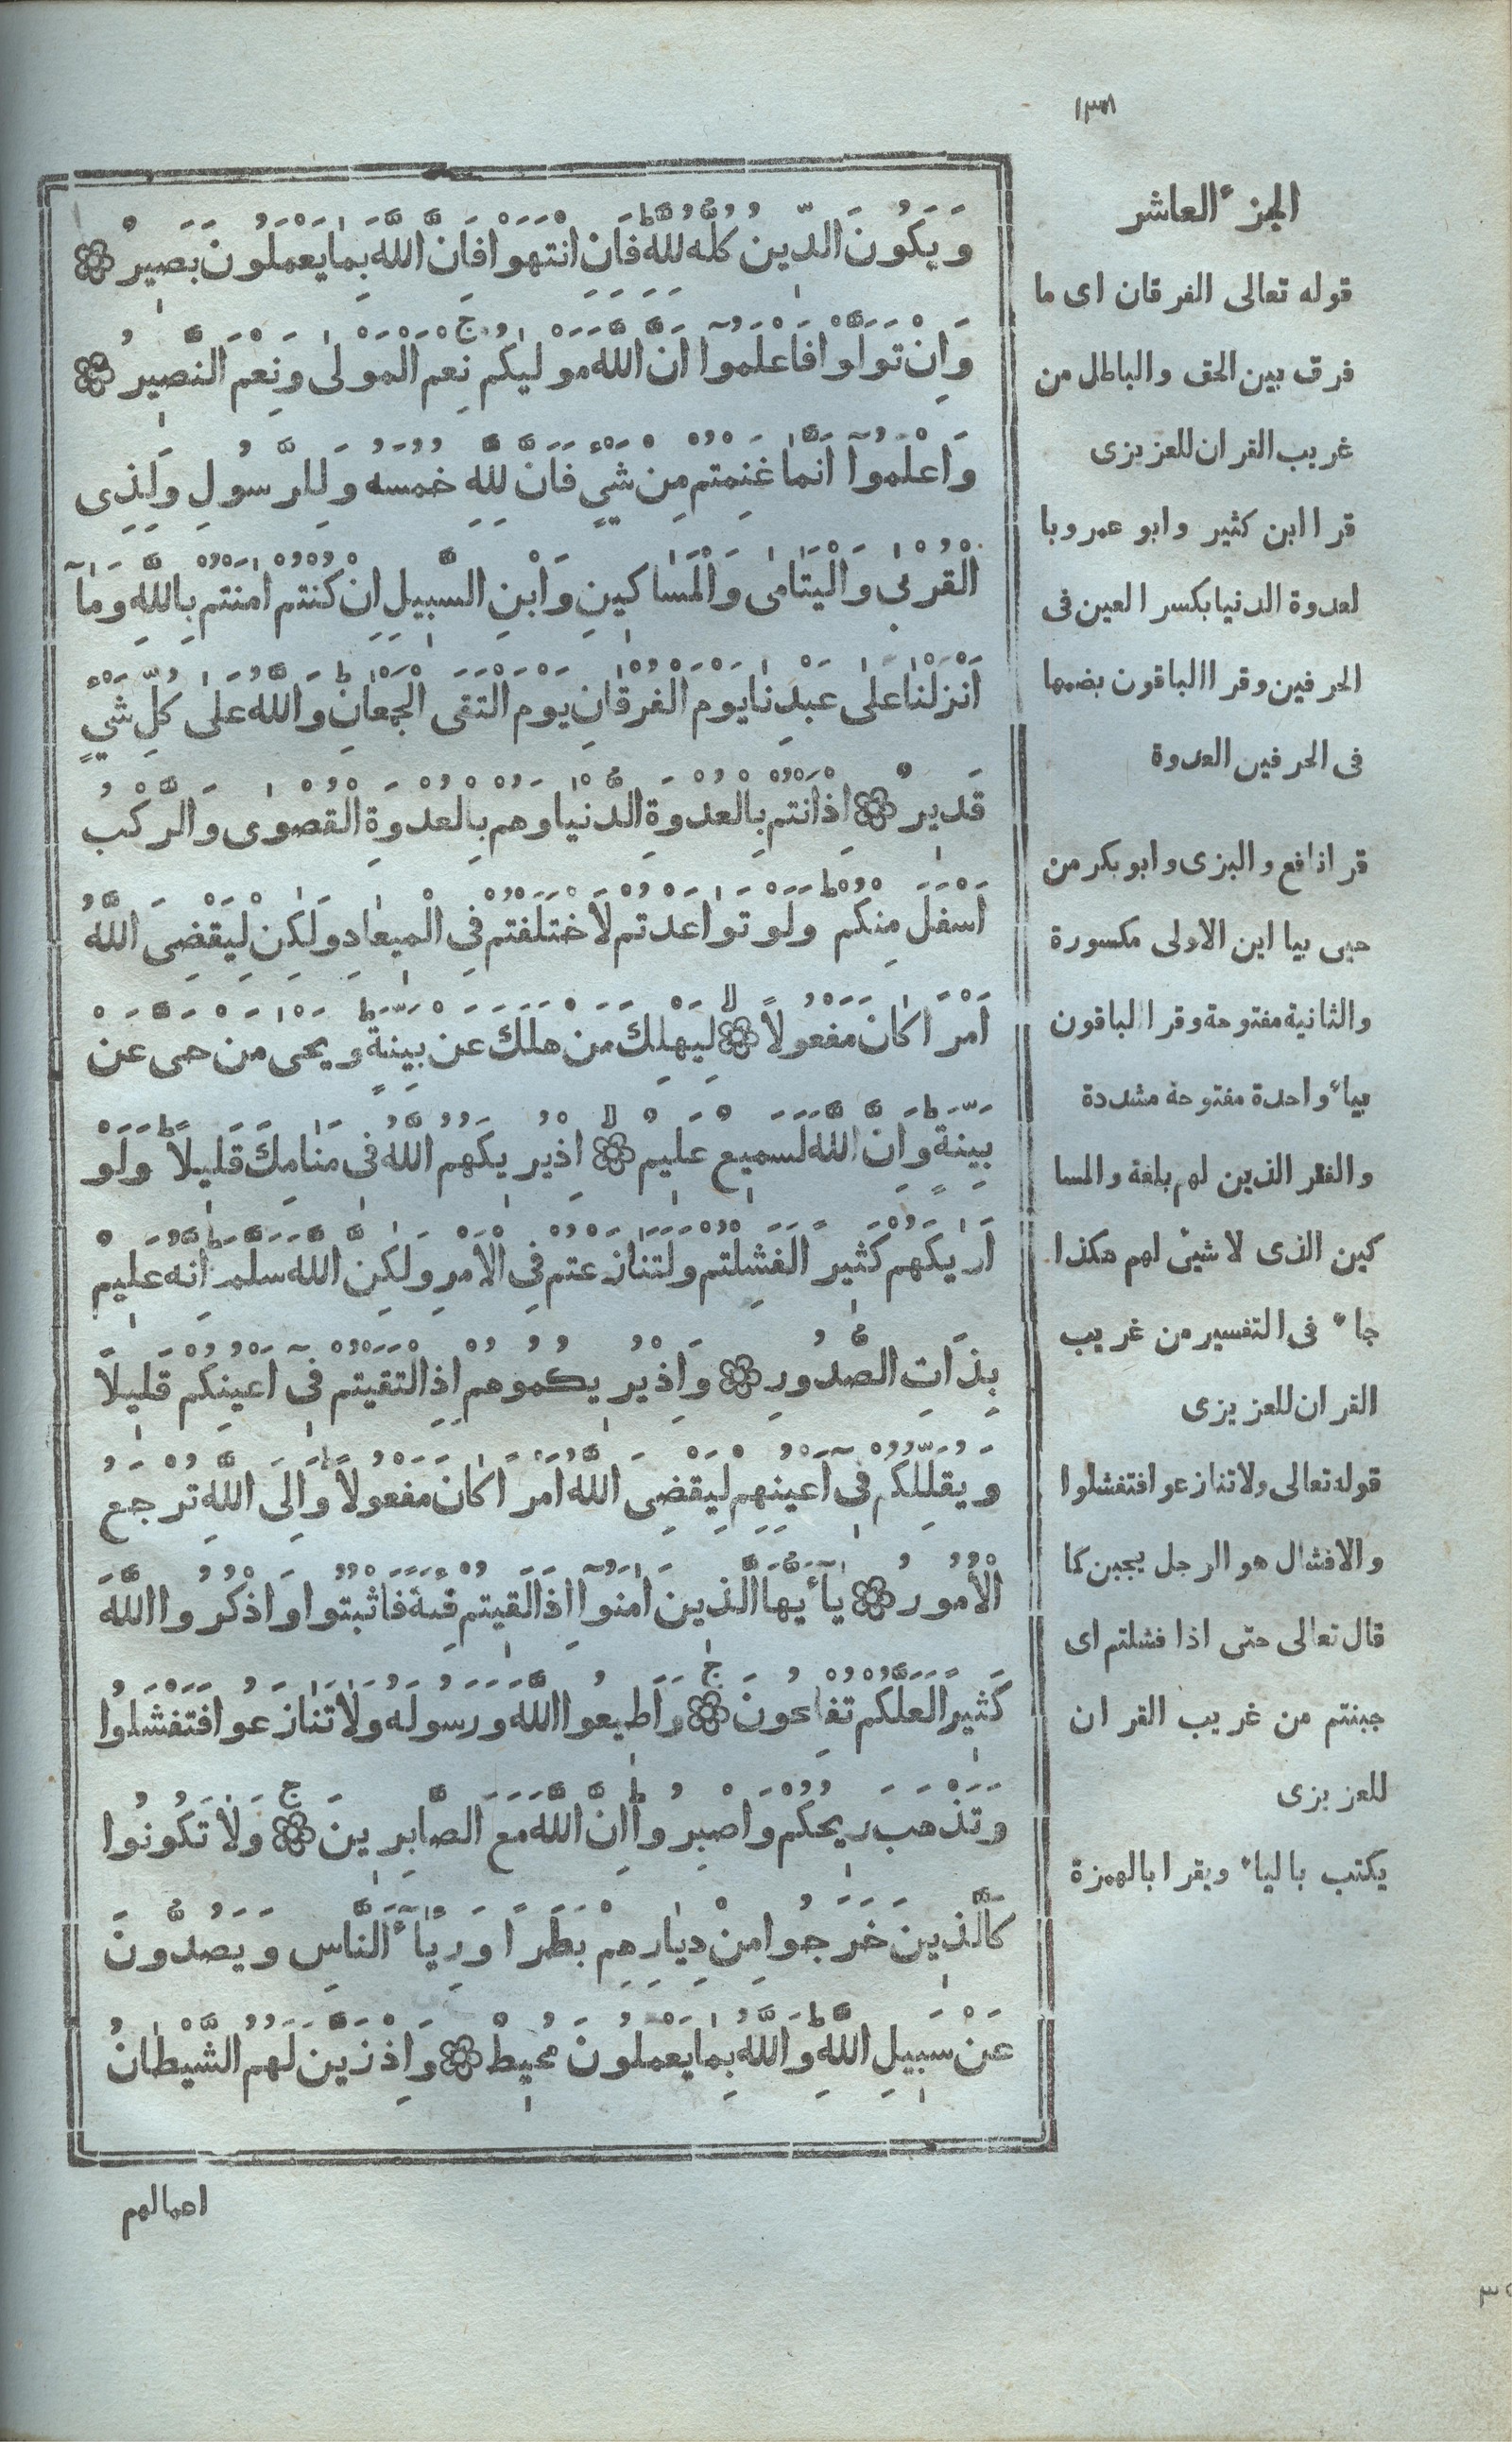 ١٣٨
وَيَكُونَ الدِّينُ كُلُّهُ لِلّٰهِ فَاِنِ انْتَهَوْا فَاِنَّ اللّٰهَ بِمَا يَعْمَلُونَ بَصِيرٌ ۞
وَاِنْ تَوَلَّوْا فَاعْلَمُوٓا اَنَّ اللّٰهَ مَوْلٰيكُمْ نِعْمَ الْمَوْلٰى وَنِعْمَ النَّصِيرُ ۞
وَاعْلَمُوٓا اَنَّمَا غَنِمْتُمْ مِنْ شَيْءٍ فَاَنَّ لِلّٰهِ خُمُسَهُ وَلِلرَّسُولِ وَلِذِى
الْقُرْبٰى وَالْيَتَامٰى وَالْمَسَاكِينِ وَابْنِ السَّبِيلِ اِنْ كُنْتُمْ اٰمَنْتُمْ بِاللّٰهِ وَمَآ
اَنْزَلْنَا عَلٰى عَبْدِنَا يَوْمَ الْفُرْقَانِ يَوْمَ الْتَقَى الْجَمْعَانِ وَاللّٰهُ عَلٰى كُلِّ شَيْءٍ
قَدِيرٌ ۞ اِذْ اَنْتُمْ بِالْعُدْوَةِ الدُّنْيَا وَهُمْ بِالْعُدْوَةِ الْقُصْوٰى وَالرَّكْبُ
اَسْفَلَ مِنْكُمْ وَلَوْ تَوَاعَدْتُمْ لَاخْتَلَفْتُمْ فِى الْمِيعَادِ وَلٰكِنْ لِيَقْضِىَ اللّٰهُ
اَمْرًا كَانَ مَفْعُولًا ۞ لِيَهْلِكَ مَنْ هَلَكَ عَنْ بَيِّنَةٍ وَيَحْيٰى مَنْ حَىَّ عَنْ
بَيِّنَةٍ وَاِنَّ اللّٰهَ لَسَمِيعٌ عَلِيمٌ ۞ اِذْ يُرِيكَهُمُ اللّٰهُ فِى مَنَامِكَ قَلِيلًا وَلَوْ
اَرٰيكَهُمْ كَثِيرًا لَفَشِلْتُمْ وَلَتَنَازَعْتُمْ فِى الْاَمْرِ وَلٰكِنَّ اللّٰهَ سَلَّمَ اِنَّهُ عَلِيمٌ
بِذَاتِ الصُّدُورِ ۞ وَاِذْ يُرِيكُمُوهُمْ اِذِ الْتَقَيْتُمْ فِىٓ اَعْيُنِكُمْ قَلِيلًا
وَيُقَلِّلُكُمْ فِىٓ اَعْيُنِهِمْ لِيَقْضِىَ اللّٰهُ اَمْرًا كَانَ مَفْعُولًا وَاِلَى اللّٰهِ تُرْجَعُ
الْاُمُورُ ۞ يَآ اَيُّهَا الَّذِينَ اٰمَنُوٓا اِذَا لَقِيتُمْ فِئَةً فَاثْبُتُوا وَاذْكُرُوا اللّٰهَ
كَثِيرًا لَعَلَّكُمْ تُفْلِحُونَ ۞ وَاَطِيعُوا اللّٰهَ وَرَسُولَهُ وَلَا تَنَازَعُوا فَتَفْشَلُوا
وَتَذْهَبَ رِيحُكُمْ وَاصْبِرُوا اِنَّ اللّٰهَ مَعَ الصَّابِرِينَ ۞ وَلَا تَكُونُوا
كَالَّذِينَ خَرَجُوا مِنْ دِيَارِهِمْ بَطَرًا وَرِيَآءَ النَّاسِ وَيَصُدُّونَ
عَنْ سَبِيلِ اللّٰهِ وَاللّٰهُ بِمَا يَعْمَلُونَ مُحِيطٌ ۞ وَاِذْ زَيَّنَ لَهُمُ الشَّيْطَانُ
اعمالهم
الجزء العاشر
قوله تعالى الفرقان اى ما
فرق بين الحق والباطل من
غريب القران للعزيزى
قرا ابن كثير وابو عمرو با
لعدوة الدنيا بكسر العين فى
الحرفين وقرا الباقون بضمها
فى الحرفين العدوة
قرا نافع والبزى وابو بكر من
حيى بيا اين الاولى مكسورة
والثانية مفتوحة وقرا الباقون
بياء واحدة مفتوحة مشددة
والفقر الذين لهم بلغة والمسا
كين الذى لا شيئ لهم هكذا
جاء فى التفسير من غريب
القران للعزيزى
قوله تعالى ولا تنازعوا فتفشلوا
والافشال هو الرجل يجبن كما
قال تعالى حتى اذا فشلتم اى
جبنتم من غريب القران
للعزيزى
يكتب بالياء ويقرا بالهمزة